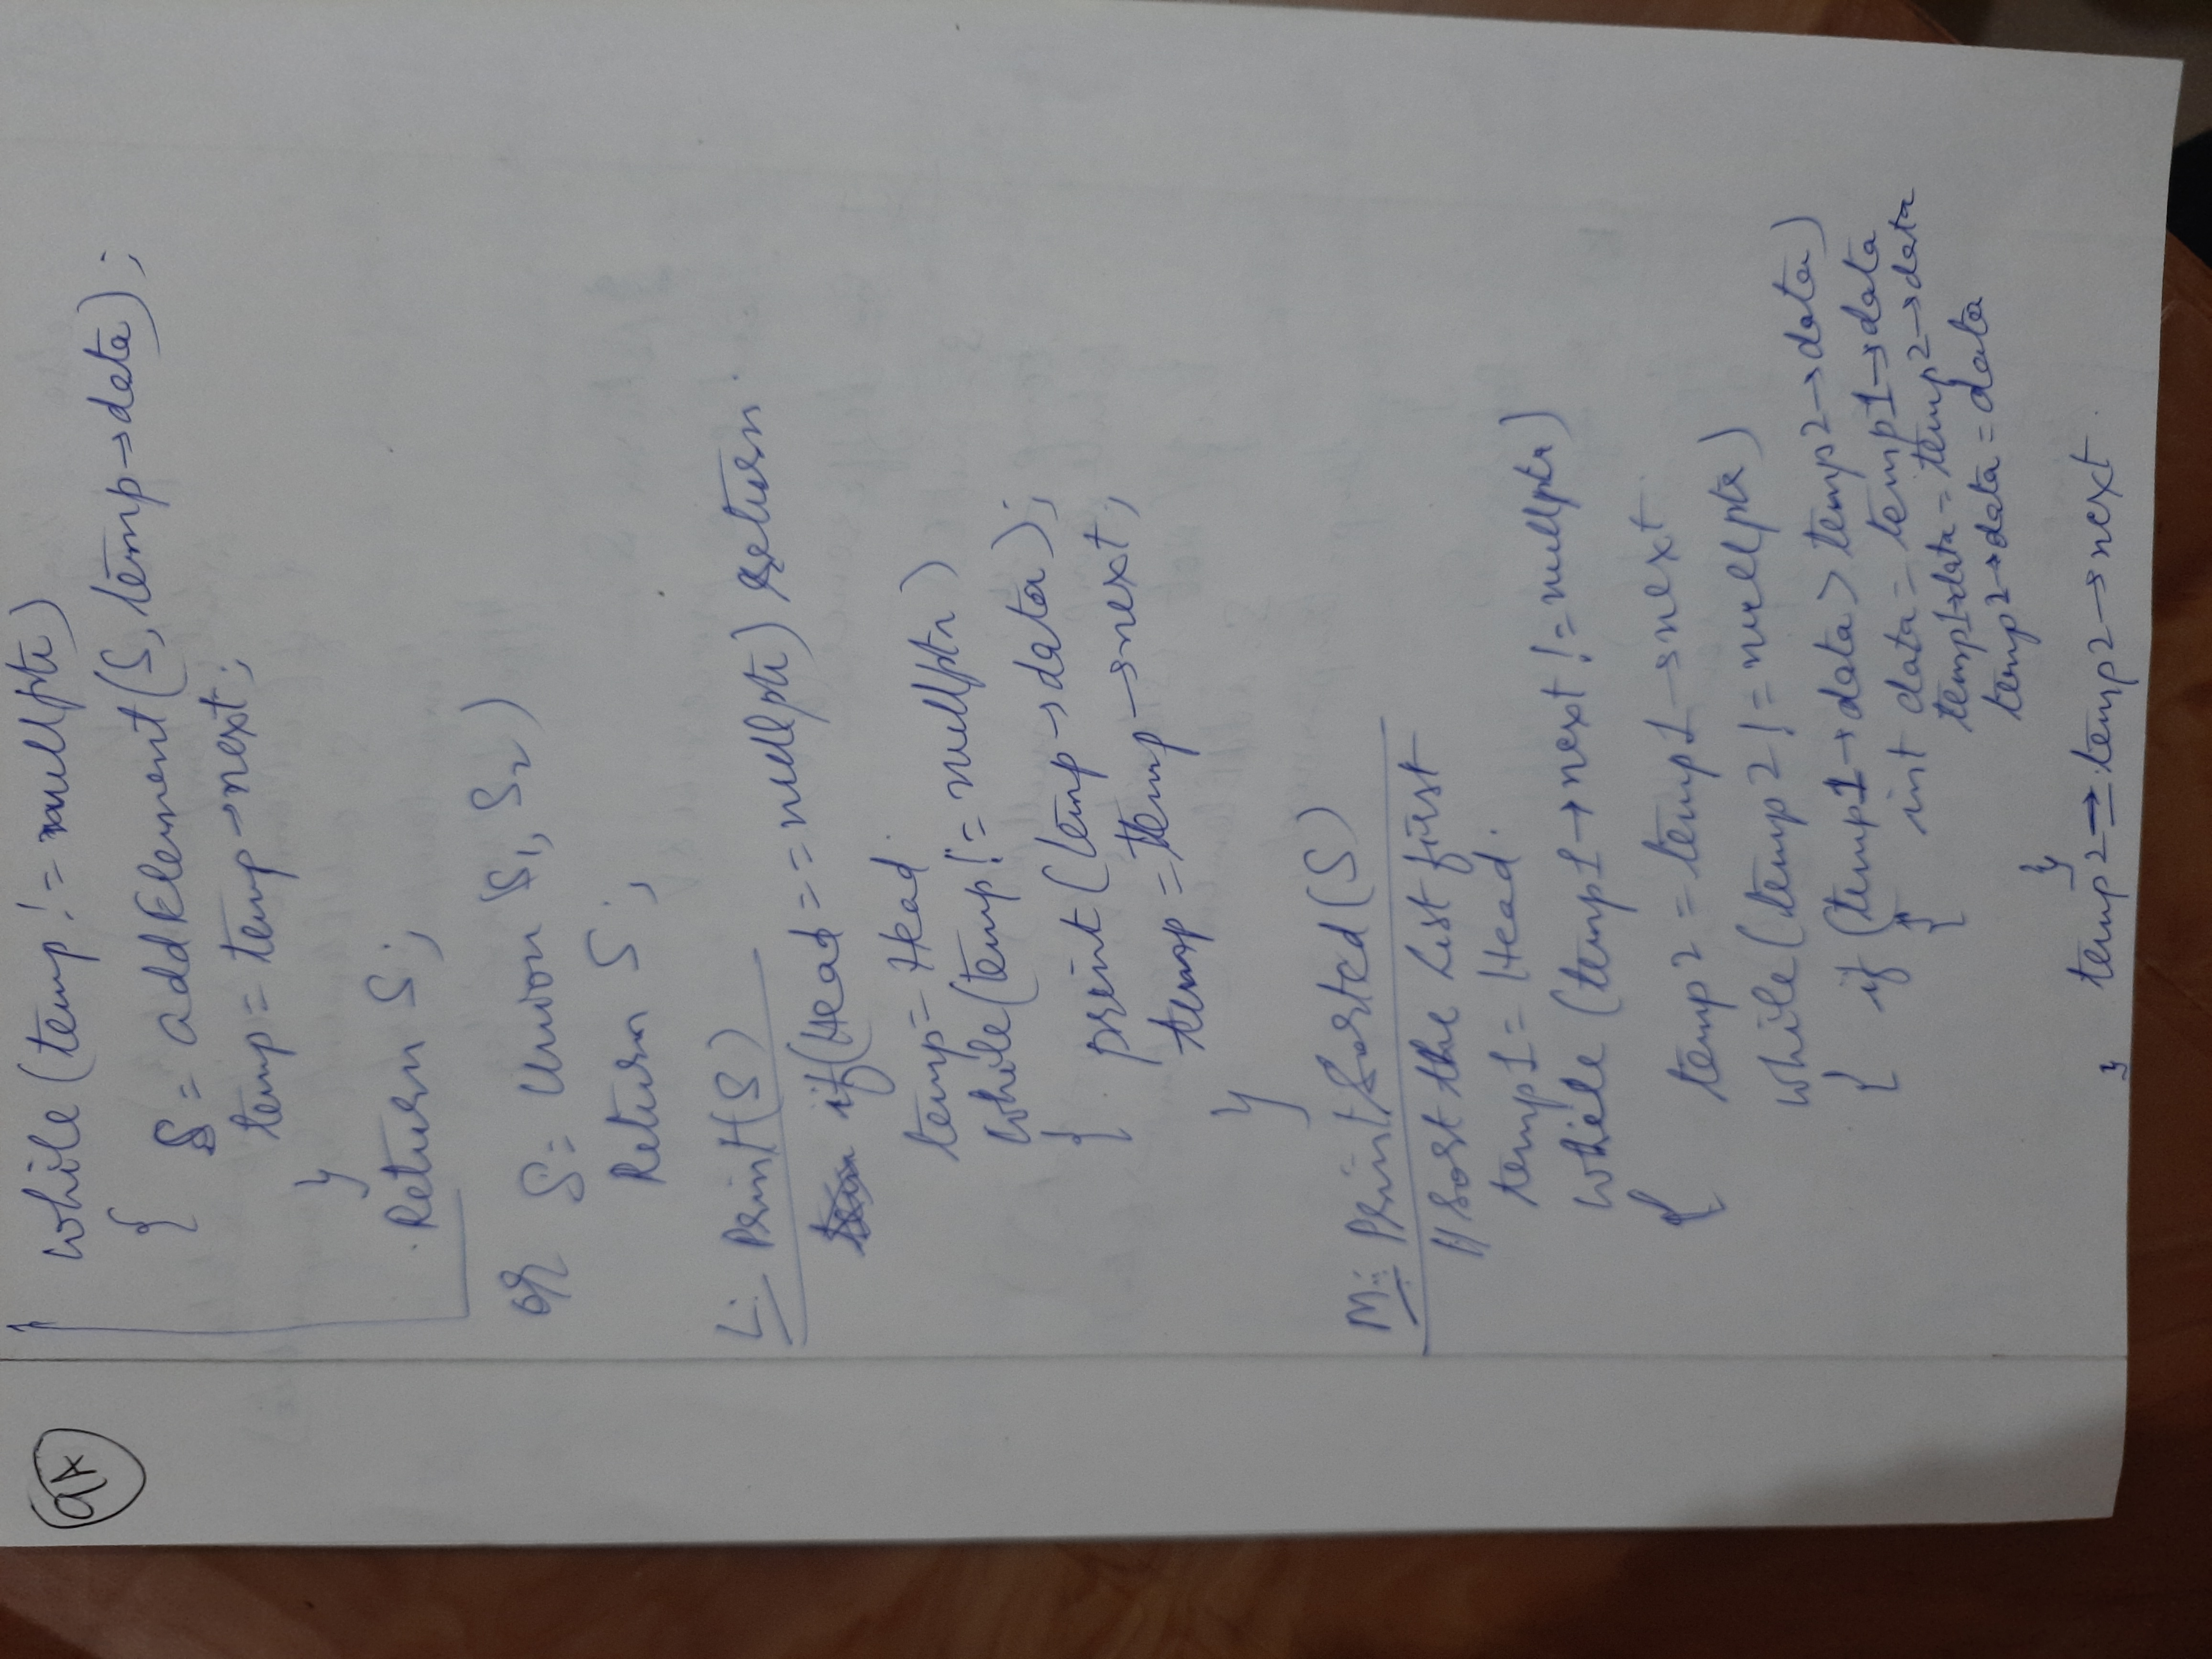 9A
while (temp != nullptr)
{ S = addElement(S, temp→data);
temp = temp→next;
}
Return S;
or S = Union (S1, S2)
Return S;
L: Print(S)
if(Head == nullptr) return
temp = Head
while(temp != nullptr)
{ print(temp→data);
temp = temp→next;
}
M: PrintSorted(S)
// Sort the List first
temp1 = Head
while (temp1→next != nullptr)
{ temp2 = temp1→next
while(temp2 != nullptr)
{ if (temp1→data > temp2→data)
{ int data = temp1→data
temp1→data = temp2→data
temp2→data = data
}
} temp2 = temp2→next